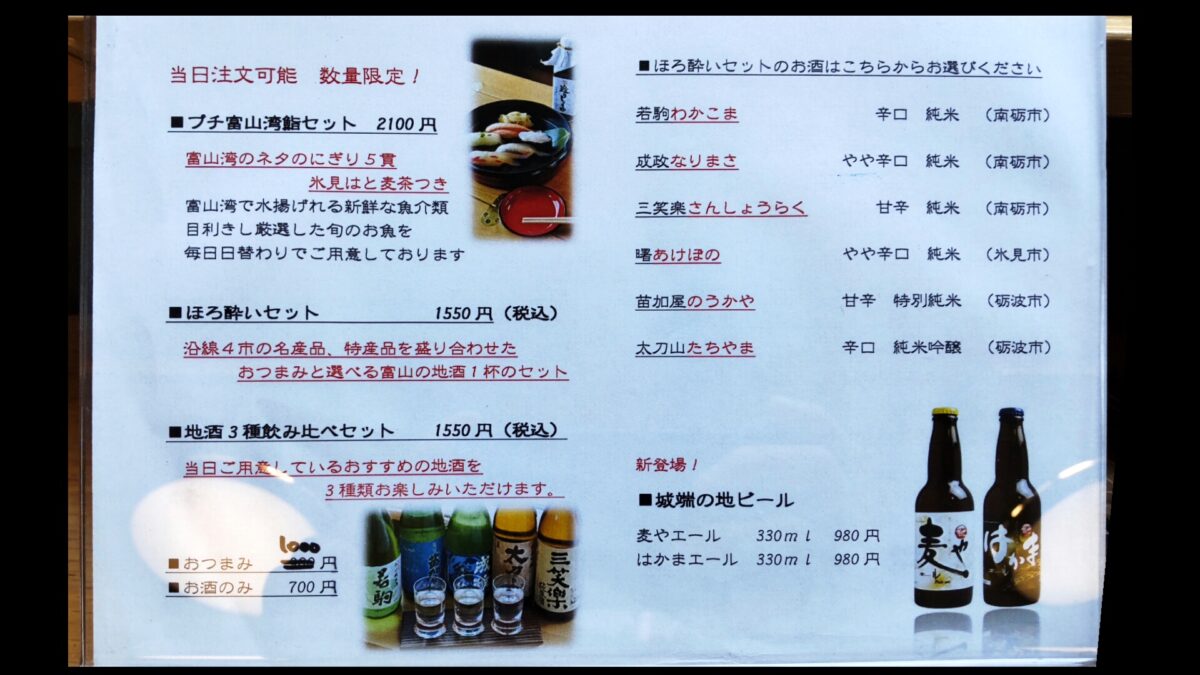 当日注文可能　数量限定！
■プチ富山湾鮨セット　2100円
富山湾のネタのにぎり５貫
氷見はと麦茶つき
富山湾で水揚げれる新鮮な魚介類
目利きし厳選した旬のお魚を
毎日日替わりでご用意しております
■ほろ酔いセット　1550円（税込）
沿線４市の名産品、特産品を盛り合わせた
おつまみと選べる富山の地酒１杯のセット
■地酒３種飲み比べセット　1550円（税込）
当日ご用意しているおすすめの地酒を
３種類お楽しみいただけます。
■おつまみ　1000円
■お酒のみ　700円
若駒
太刀山
三笑楽
■ほろ酔いセットのお酒はこちらからお選びください
若駒わかこま　辛口　純米　（南砺市）
成政なりまさ　やや辛口　純米　（南砺市）
三笑楽さんしょうらく　甘辛　純米　（南砺市）
曙あけぼの　やや辛口　純米　（氷見市）
苗加屋のうかや　甘辛　特別純米　（砺波市）
太刀山たちやま　辛口　純米吟醸　（砺波市）
新登場！
■城端の地ビール
麦やエール　330ｍｌ　980円
はかまエール　330ｍｌ　980円
麦や
はかま